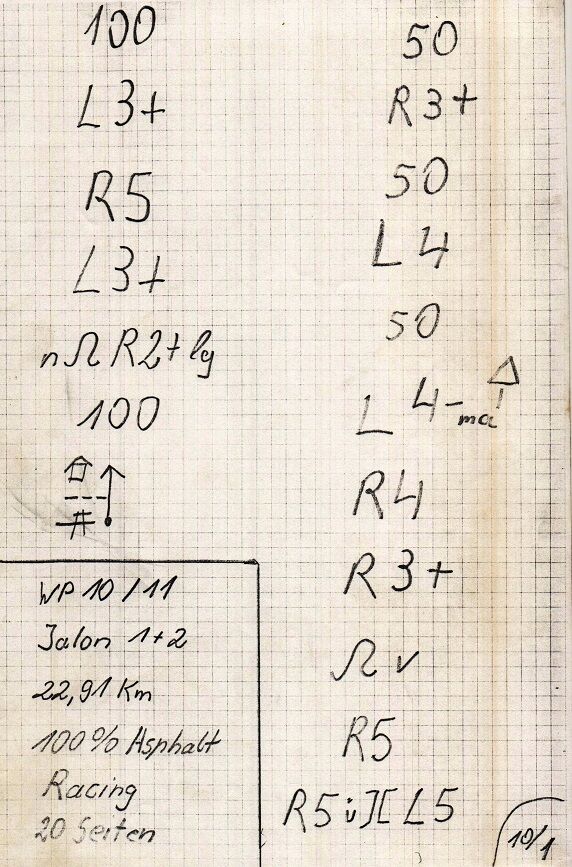 100
L3+
R5
L3+
n Ω R2+ lg
100
WP 10/11
Jalon 1+2
22,91 Km
100% Asphalt
Racing
20 Seiten
50
R3+
50
L4
50
L4- ma
R4
R3+
Ω v
R5
R5 ü][ L5
10/1